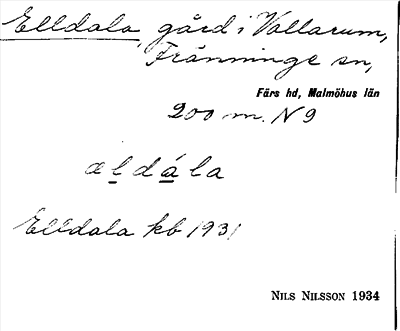 Elldala, gård i Vallarum,
Fränninge sn,
Färs hd, Malmöhus län
200 m. N 9
ældála
Elldala kb 1931
NILS NILSSON 1934